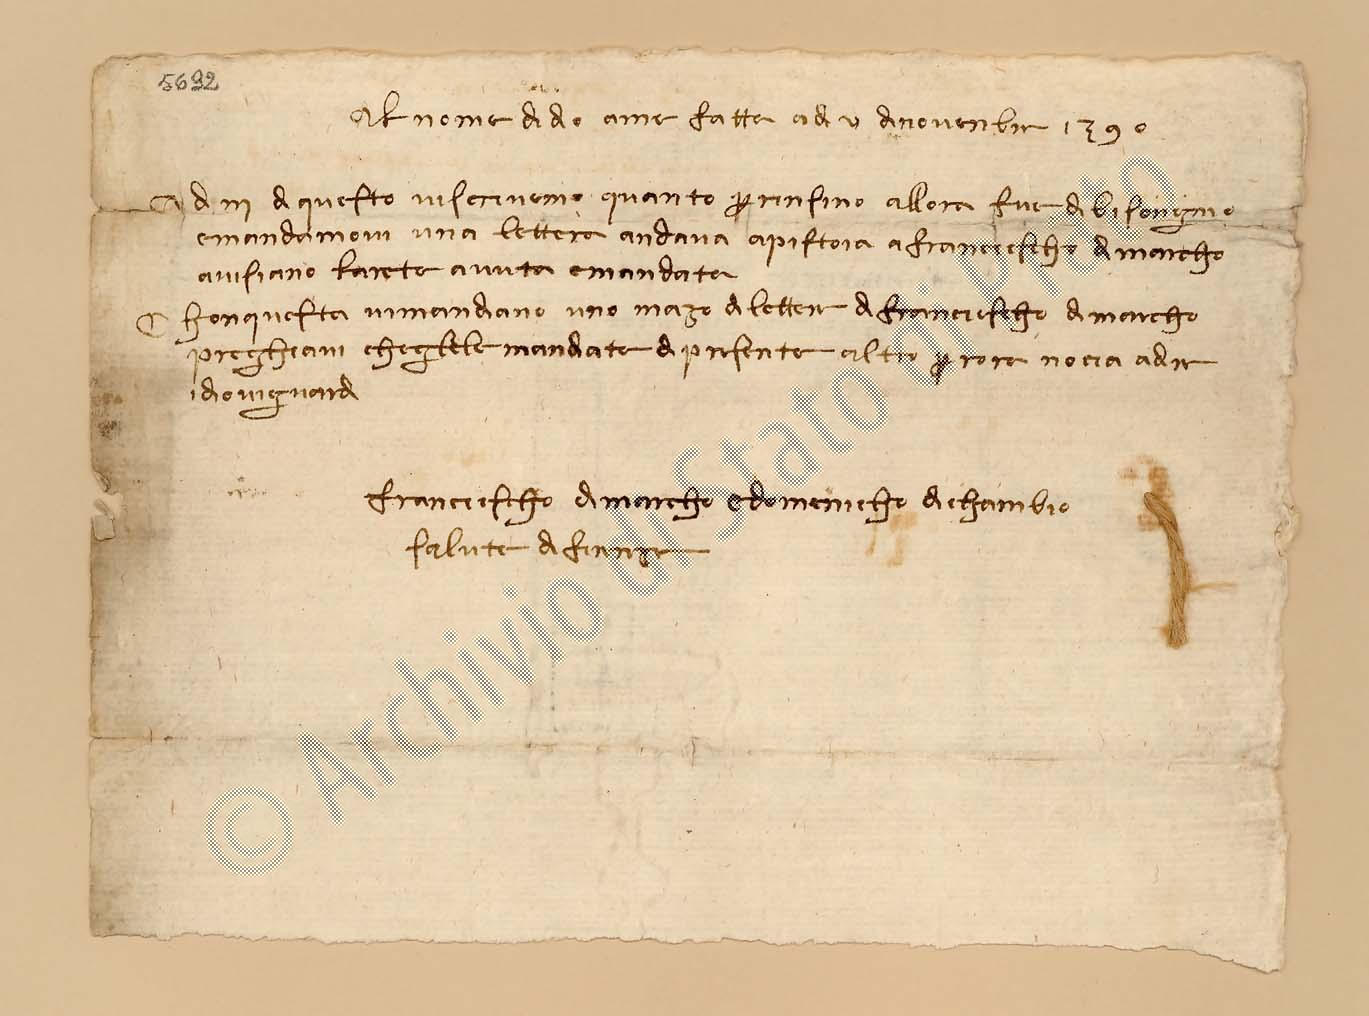 5692
Al nome di dio ame fatta a di v di novenbre 1390
A dì iij di questo vi scrivemo quanto per insino allora fue di bisongno
e mandamovi una lettera andava a pistoia a franciescho di marcho
avisiano larete avuta e mandata
chon questa vi mandiano uno mazo di lettere di franciescho di marcho
preghiavi che gliele mandiate di presente altro per ora nocia a dire
idio vi guardi
franciescho di marcho e domenicho di chambio
salute di firenze
© Archivio di Stato di Prato